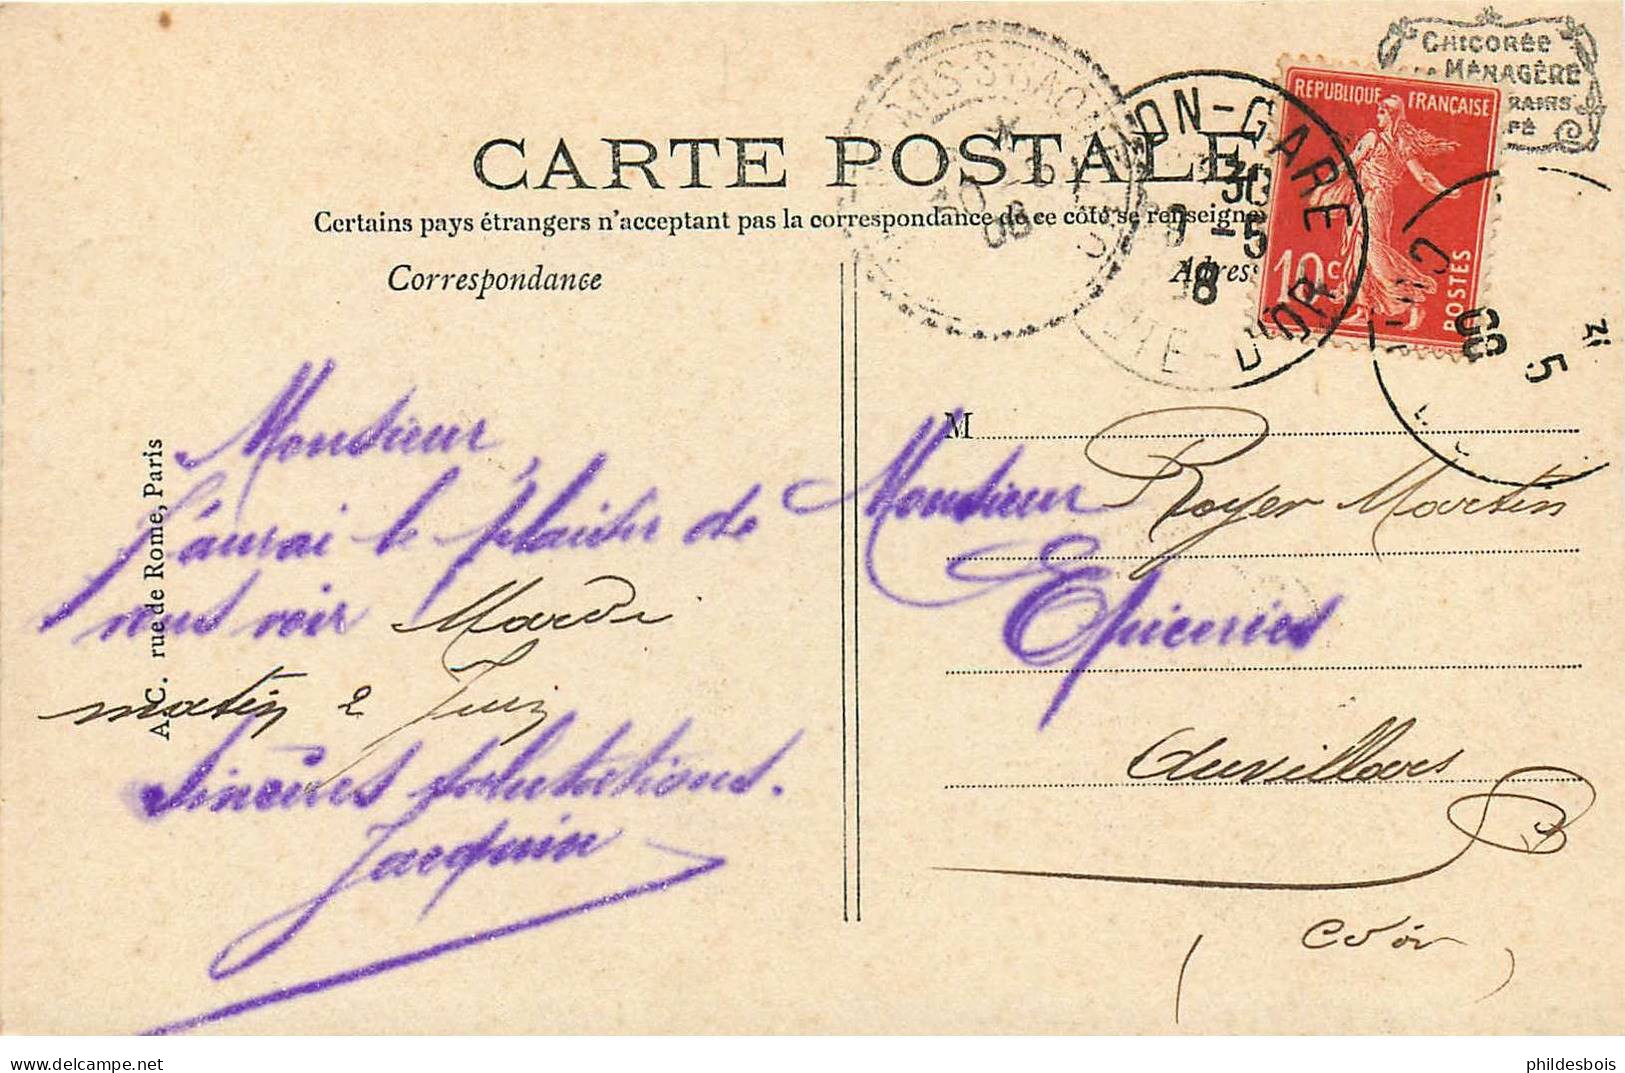 CHICORÉE
MÉNAGÈRE
REPUBLIQUE FRANÇAISE
10 c.
POSTES
ON-GARE
30
9 -5
8
CÔTE-D'OR
30
5
08
5
08
CARTE POSTALE
Certains pays étrangers n'acceptant pas la correspondance de ce côté se renseigne
Correspondance
Adress
A. C. rue de Rome, Paris
Monsieur
J'aurai le plaisir de
vous voir Mardi
matin 2 Juin
Sincères salutations.
Jacquin
M
Monsieur Royer Martin
Epiceries
Auvillars
(Cd'or)
delcampe.net
phildesbois